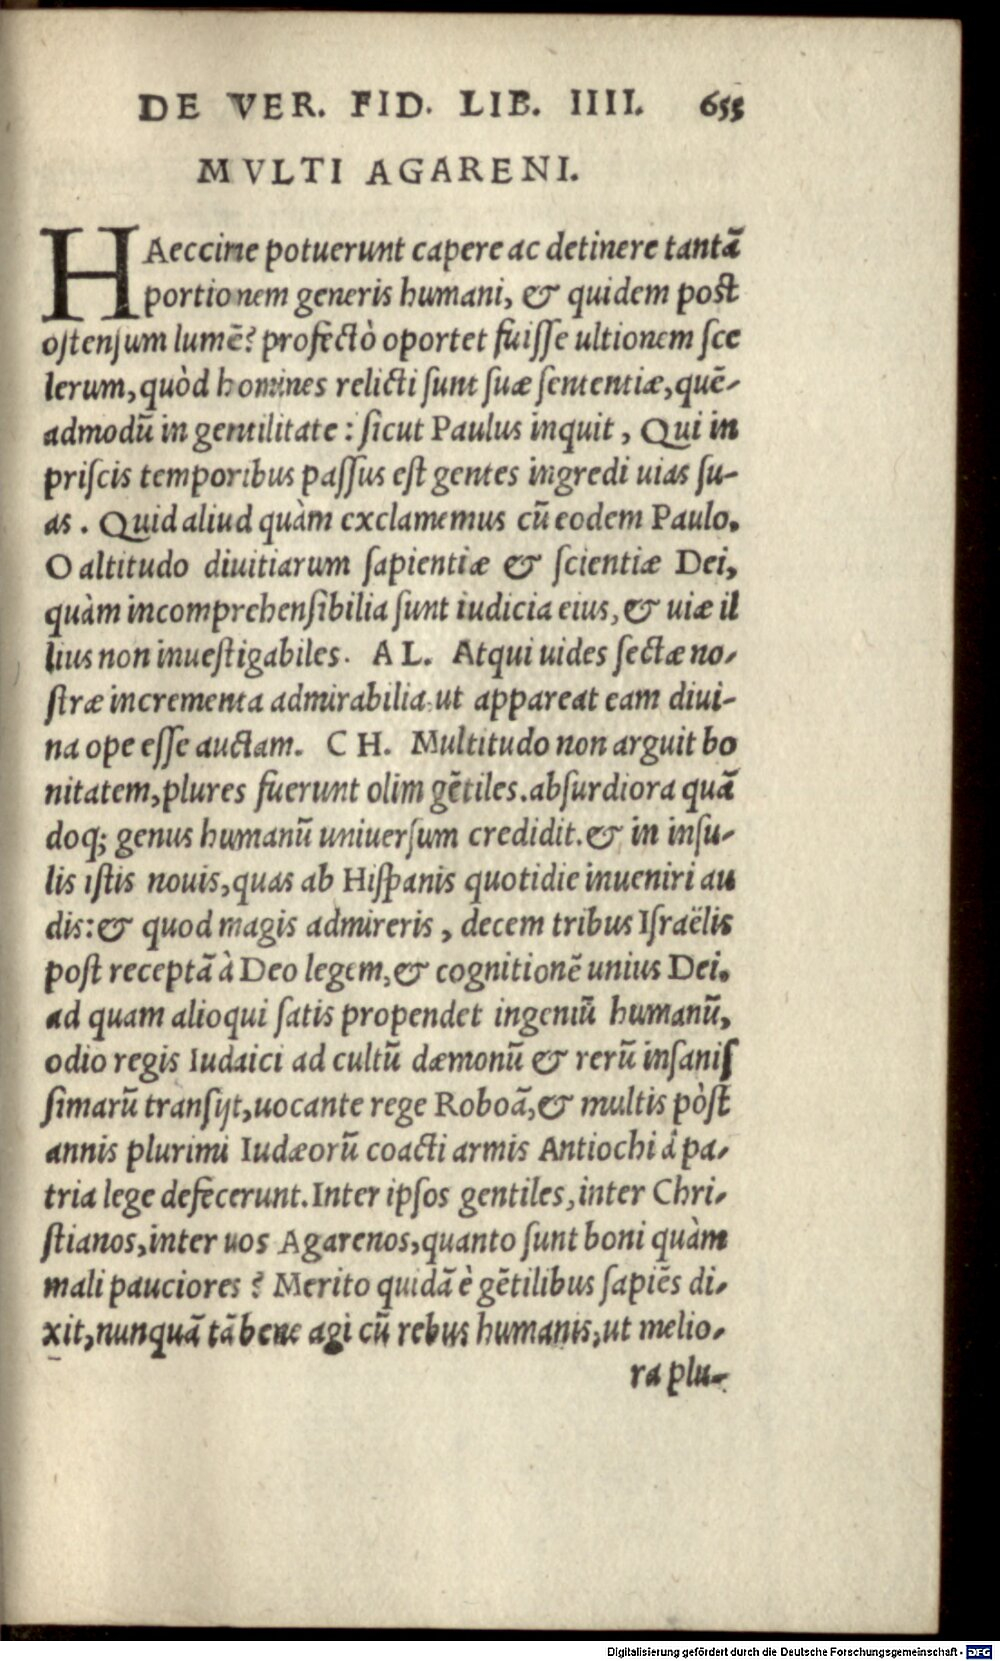 DE VER. FID. LIB. IIII. 655
MVLTI AGARENI.
HAeccine potuerunt capere ac detinere tantā
portionem generis humani, & quidem post
ostensum lumē? profectò oportet fuisse ultionem sce
lerum, quòd homines relicti sunt suæ sententiæ, quē-
admodū in gentilitate: sicut Paulus inquit, Qui in
priscis temporibus passus est gentes ingredi uias su-
as. Quid aliud quàm exclamemus cū eodem Paulo.
O altitudo diuitiarum sapientiæ & scientiæ Dei,
quàm incomprehensibilia sunt iudicia eius, & uiæ il
lius non inuestigabiles. AL. Atqui uides sectæ no-
stræ incrementa admirabilia, ut appareat eam diui-
na ope esse auctam. CH. Multitudo non arguit bo
nitatem, plures fuerunt olim gētiles. absurdiora quā
doq; genus humanū uniuersum credidit. & in insu-
lis istis nouis, quas ab Hispanis quotidie inueniri au
dis: & quod magis admireris, decem tribus Israëlis
post receptā à Deo legem, & cognitionē unius Dei.
ad quam alioqui satis propendet ingeniū humanū,
odio regis Iudaici ad cultū dæmonū & rerū insanis
simarū transijt, uocante rege Roboā, & multis pòst
annis plurimi Iudæorū coacti armis Antiochi à pa-
tria lege defecerunt. Inter ipsos gentiles, inter Chri-
stianos, inter uos Agarenos, quanto sunt boni quàm
mali pauciores? Merito quidā è gētilibus sapiēs di-
xit, nunquā tā bene agi cū rebus humanis, ut melio-
ra plu-
Digitalisierung gefördert durch die Deutsche Forschungsgemeinschaft - DFG